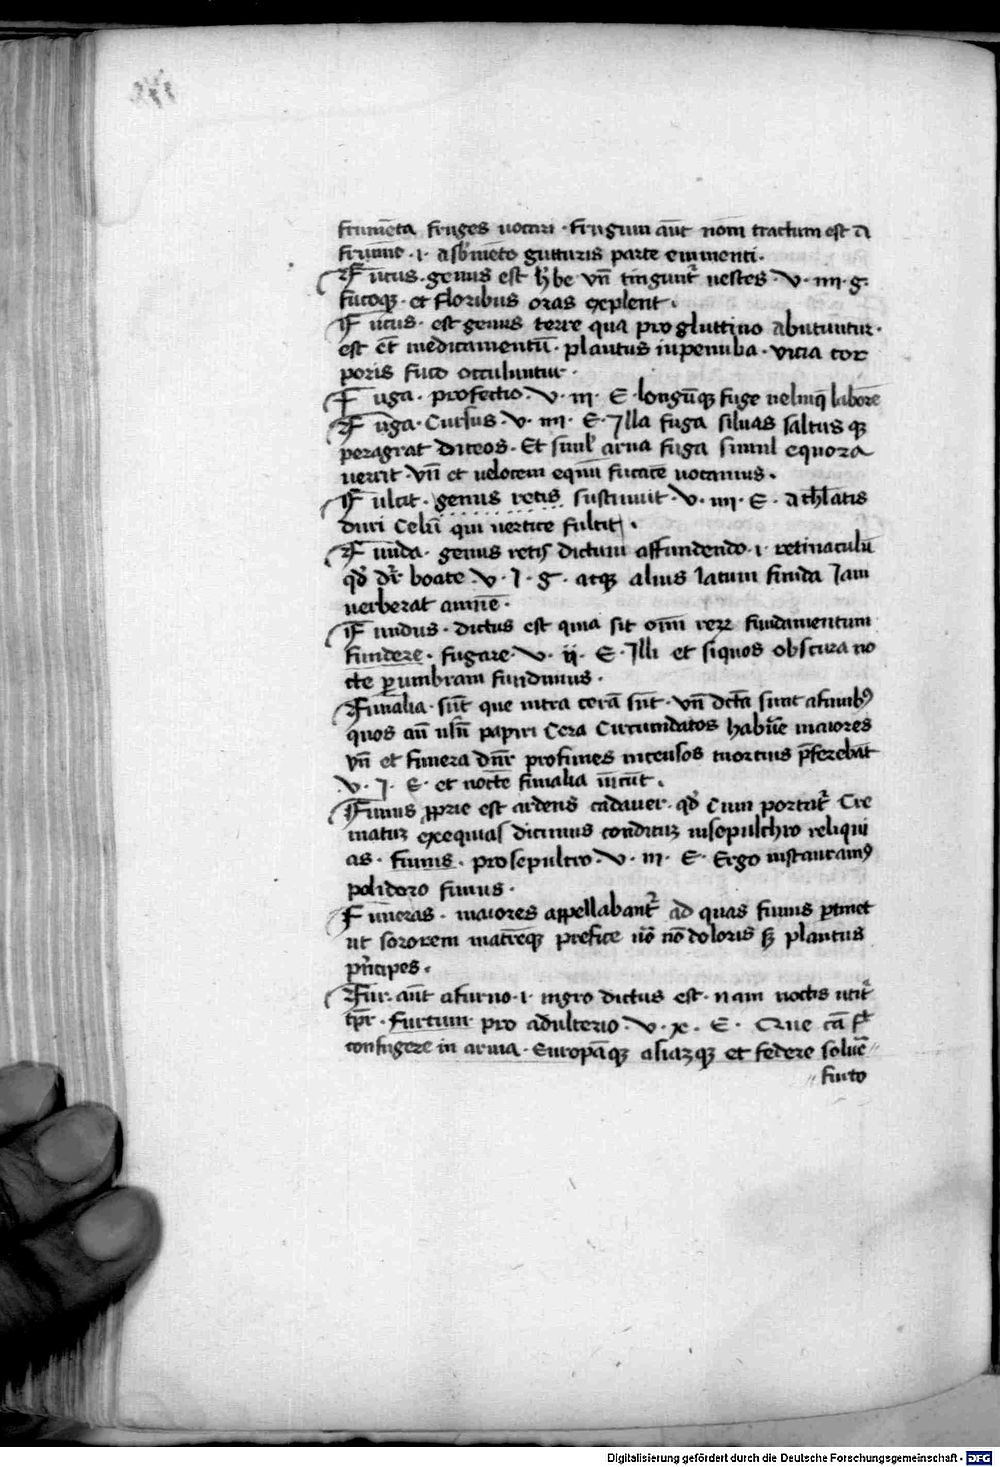 frumēta fruges uocari · frugum aūt nom̄ tractum est a
frumine · i · a sb'mēto gutturis parte eminenti ·
Fucus · genus est h'be vn̄ tingunt' uestes · v · iiii · g ·
fucoq3 · et floribus oras explent ·
Fucus · est genus terre qua pro gluttino abutuntur ·
est et̄ medicamentū · plautus in penuba · vicia cor
poris fuco occuluntur ·
Fuga · profectio · v · iii · E · longūq3 fuge nelinq̄ laborē
Fuga · Cursus · v · iiii · E · Illa fuga siluas saltusq3
peragrat diceos · Et simul arua fuga simul equora
uerrit · vn̄ et uelocem equū fucacē uocamus ·
Fulcit · genus retis sustinuit · v · iiii · E · athlātis
duri Celū qui uertice fulcit ·
Funda · genus retis dictum affundendo · i · retinaculū
qd' dr̄ boate · v · I · g · atq3 alius latum funda Iam
uerberat amnē ·
Fundus · dictus est quia sit om̄i rerz fundamentum
fundere · fugare · v · ii · E · Illi et siquos obscura no
cte p umbram fundimus ·
Funalia · sūt que intra cerā sūt · vn̄ dcta sunt a funib9
quos an̄ usū papiri Cera Circumdatos habūe maiores
vn̄ et funera dnr̄ pro funes incensos mortuis p̄ferebāt
v · I · E · et nocte funalia uīcūt ·
Funus pprie est ardens cadauer · qd' Cum portat' Cre
matuz exequias dicimus conditū insepulchro reliqui
as · funus · pro sepultro · v · iii · E · Ergo instauram9
polidoro funus ·
Funeras · maiores appellabant' ad quas funus ptinet
ut sororem matreq3 prefice nō nō doloris s3 planctus
pncipes ·
Fur · aūt a furno · i · nigro dictus est · nam noctis utit'
tpr̄ · furtum pro adulterio · v · x · E · Que cā f'
consurgere in arma · Europāq3 asiazq3 et federe soluē
furto
Digitalisierung gefördert durch die Deutsche Forschungsgemeinschaft - DFG